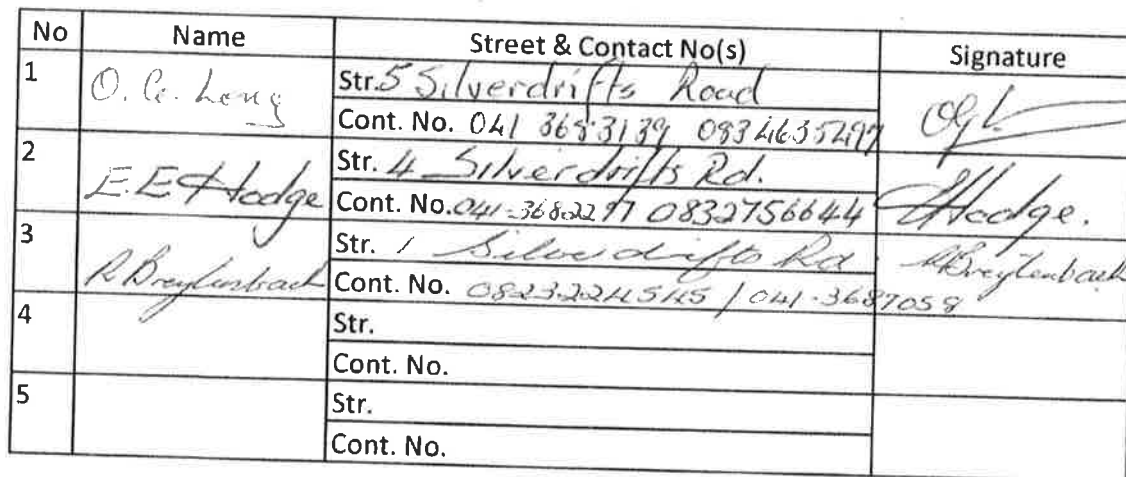 No Name Street & Contact No(s) Signature
1 O. G. Long Str. 5 Silverdrifts Road
Cont. No. 041 3683139 0834635497
2 E.E Hodge Str. 4 Silverdrifts Rd. Hodge.
Cont. No. 041-3682297 0832756644
3 R Breytenbach Str. 1 Silverdrifts Rd. RBreytenbach
Cont. No. 0823224545 / 041-3687058
4 Str.
Cont. No.
5 Str.
Cont. No.